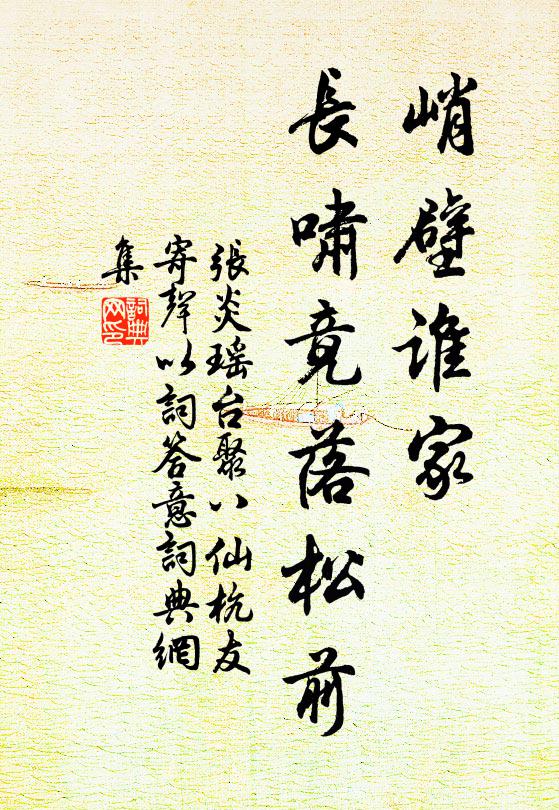 峭壁誰家
長嘯竟落松前
張炎瑶台聚八仙杭友
寄聲以詞答意詞典網
集
詞典
网印